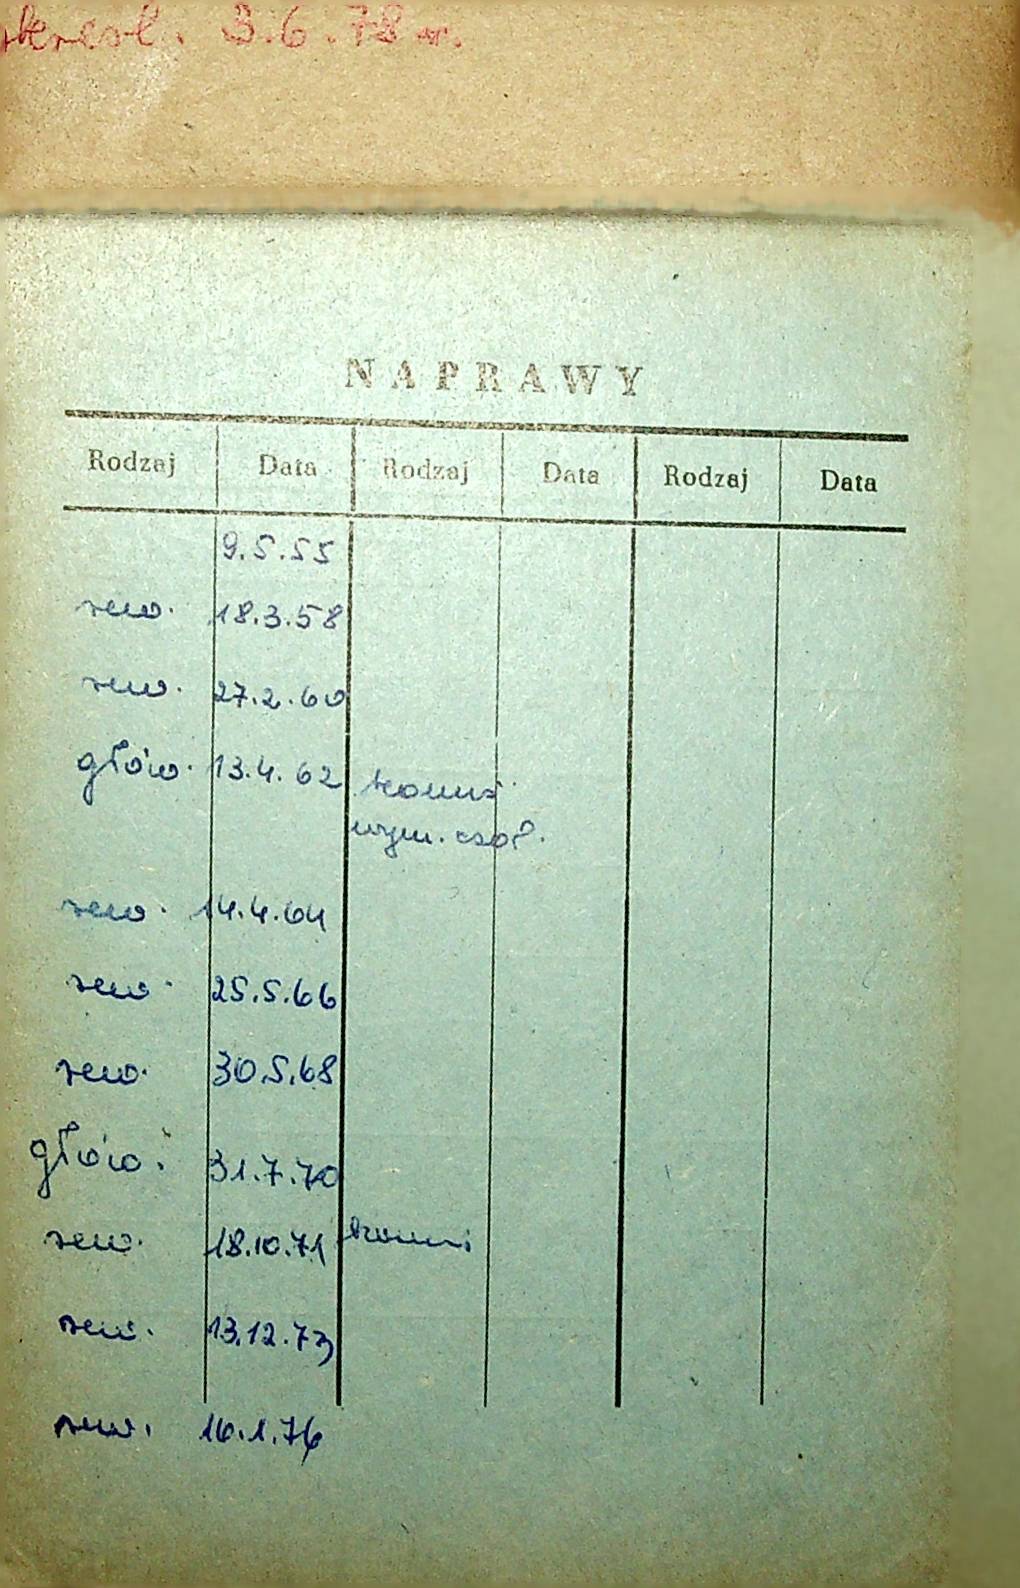 skreśl. 3.6.78 r.
NAPRAWY
Rodzaj Data Rodzaj Data Rodzaj Data
9.5.55
rew. 18.3.58
rew. 27.2.60
głów. 13.4.62
wym. czoł.
rew. 14.4.64
rew. 25.5.66
rew. 30.5.68
głów. 31.7.70
rew. 18.10.71
rew. 13.12.73
rew. 16.1.76